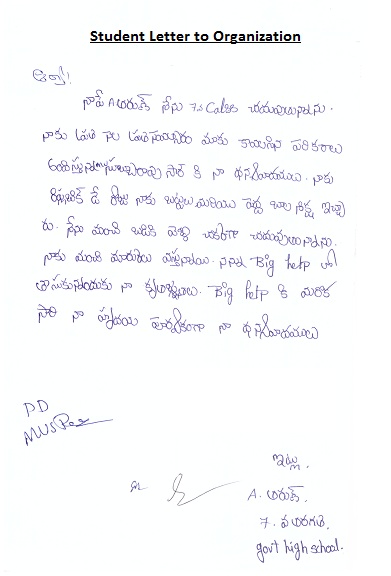 Student Letter to Organization
ఆర్యా!
నాపే A అరుణ్ నేను 7th Class చదువుతున్నాను.
నాకు ప్రతి నెల ప్రతి సంవత్సరం మాకు కావలసిన పరికరాలు
సార్ కి నా ధన్యవాదములు. నాకు
రిపబ్లిక్ డే రోజు నాకు బట్టలు మరియు పెద్ద బాల ఇచ్చా
రు. నేను మంచి బడికి వెళ్ళి చక్కగా చదువుతున్నాను.
నాకు మంచి మార్కులు వస్తున్నాయి. నన్ను Big help లో
తీసుకున్నందుకు నా కృతజ్ఞతలు. Big help కి మరొక
సారి నా హృదయ పూర్వకంగా నా ధన్యవాదములు
PD
ఇట్లు,
A. అరుణ్.
7. వ తరగతి.
govt high school.